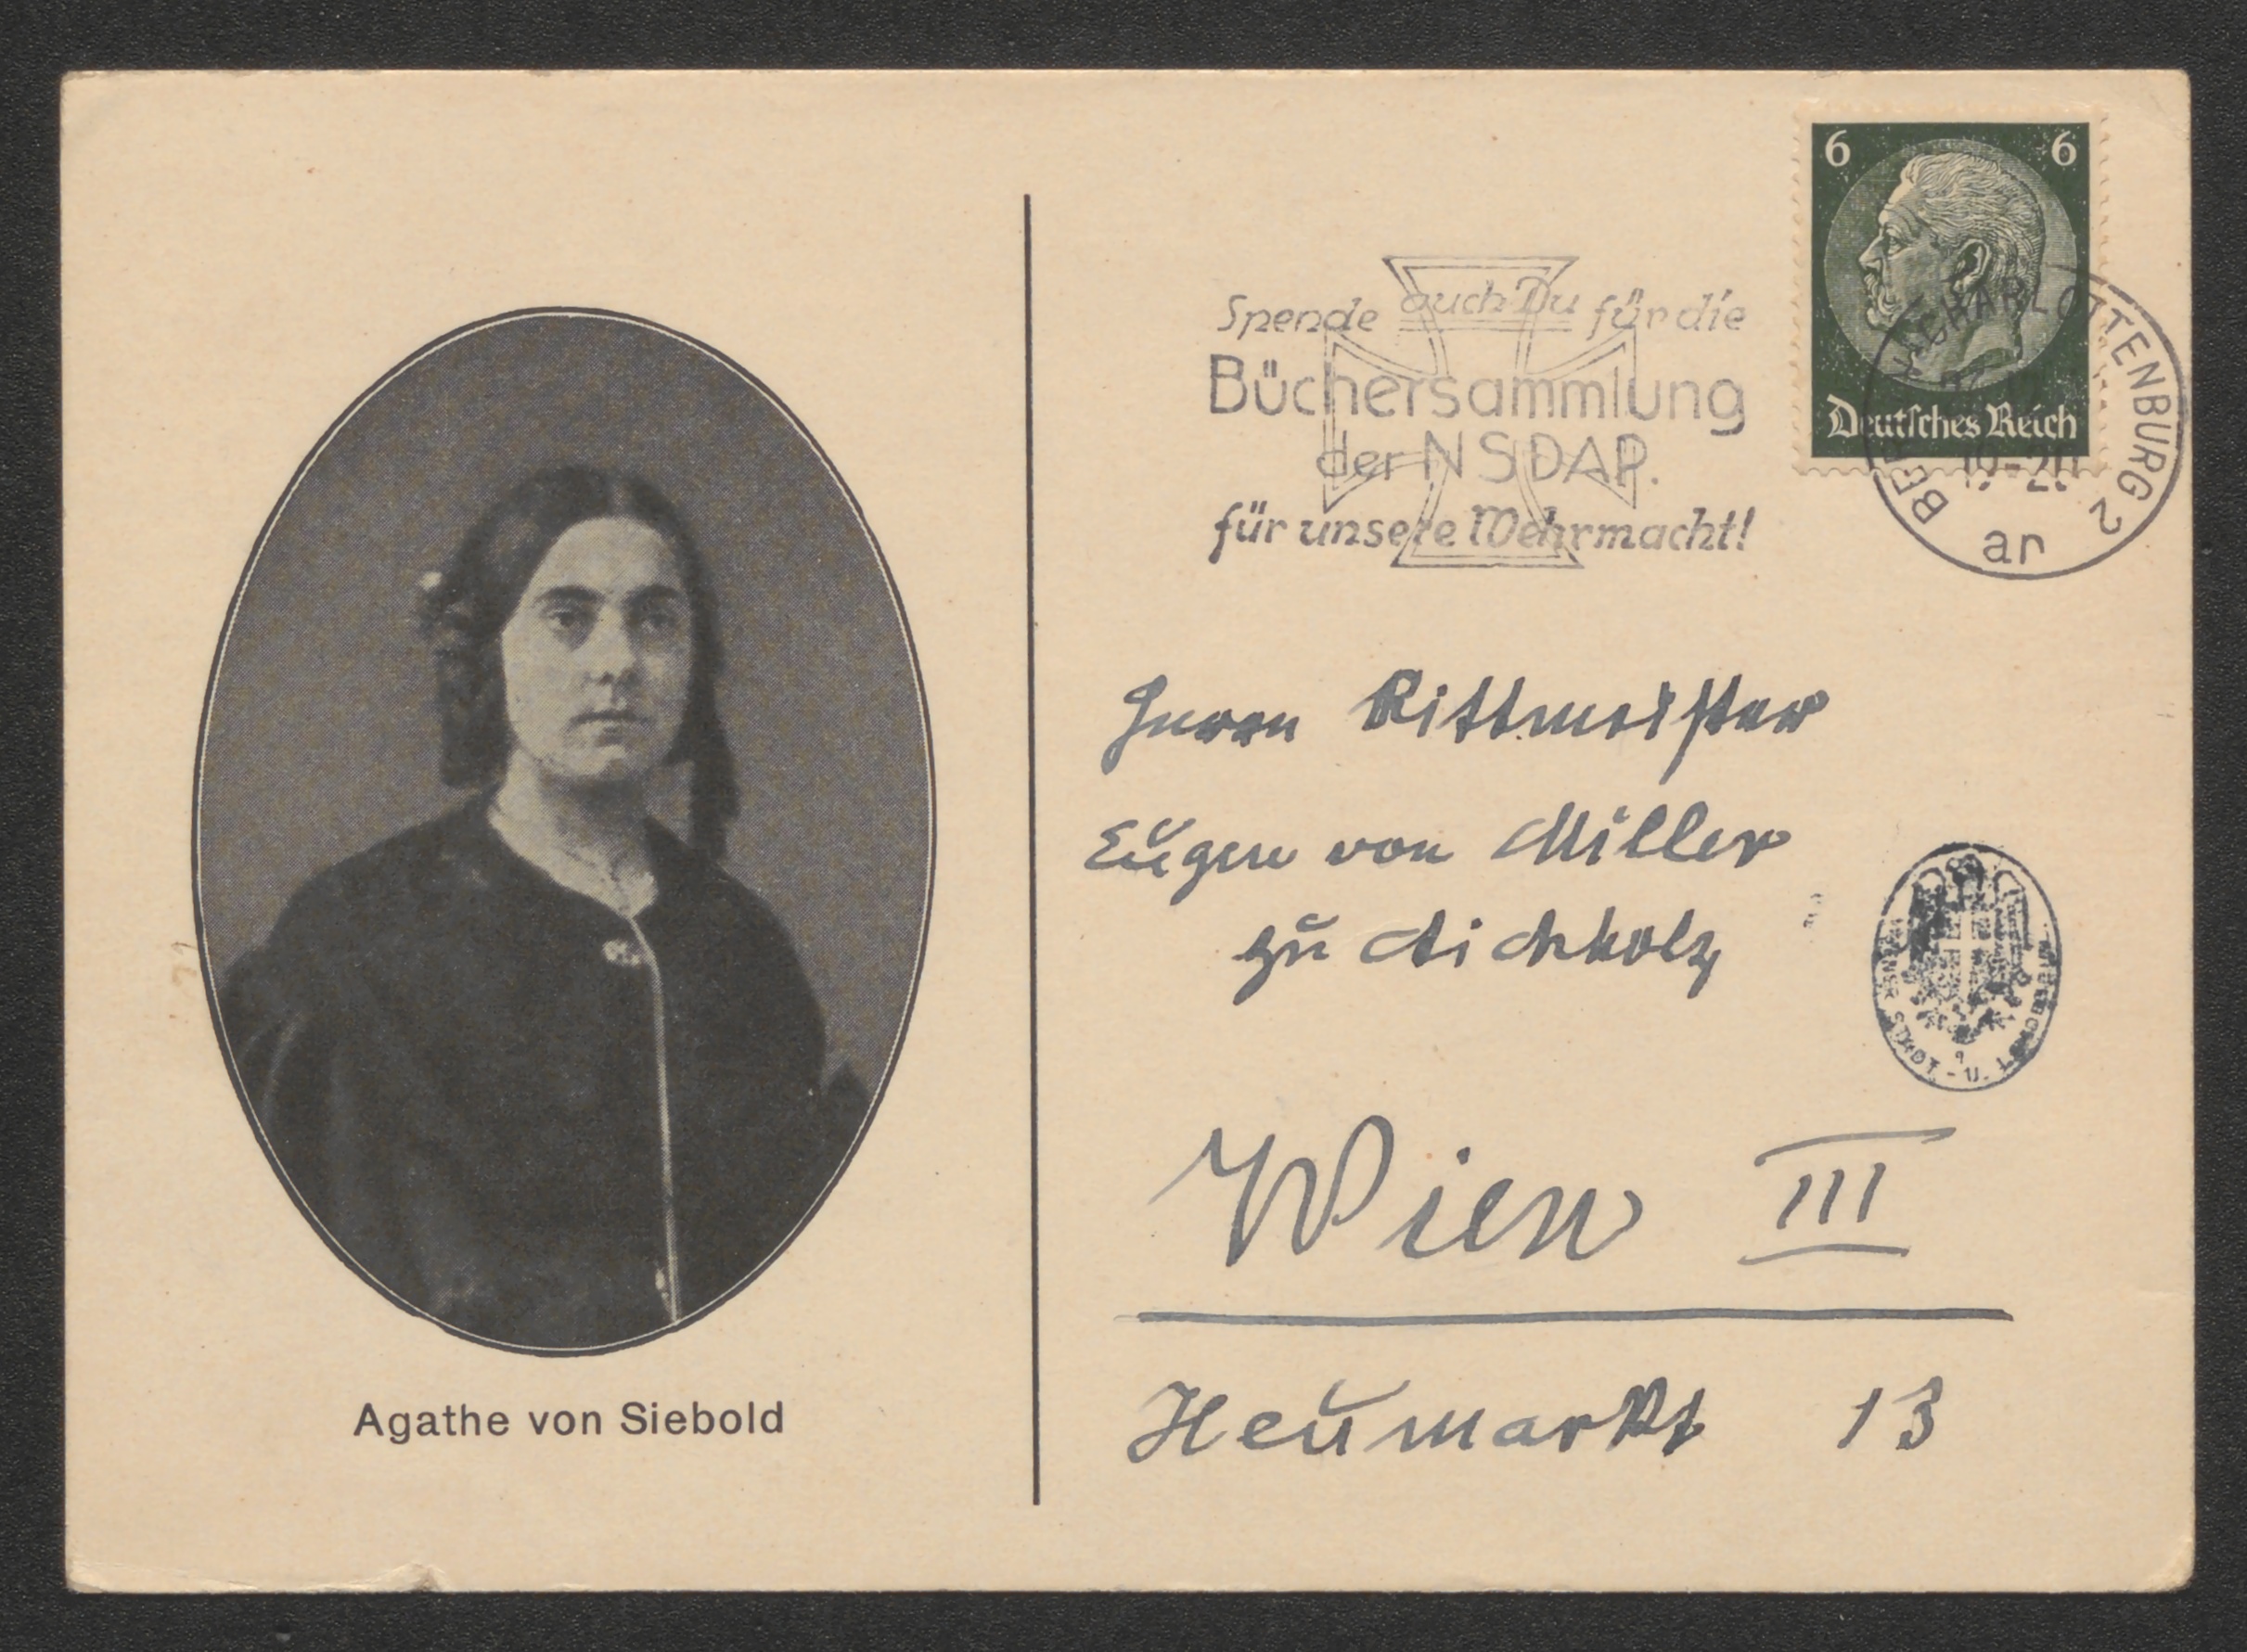 Agathe von Siebold
6 6
Deutsches Reich
BERLIN-CHARLOTTENBURG 2
19-20
an
Spende auch Du für die
Büchersammlung
der NSDAP.
für unsere Wehrmacht!
Herrn Rittmeister
Eugen von Miller
zu Aichholz
WIENER STADT- U.
Wien III
Heumarkt 13